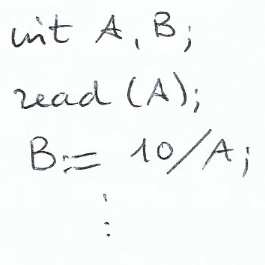 int A, B;
read (A);
B:= 10/A;
⋮